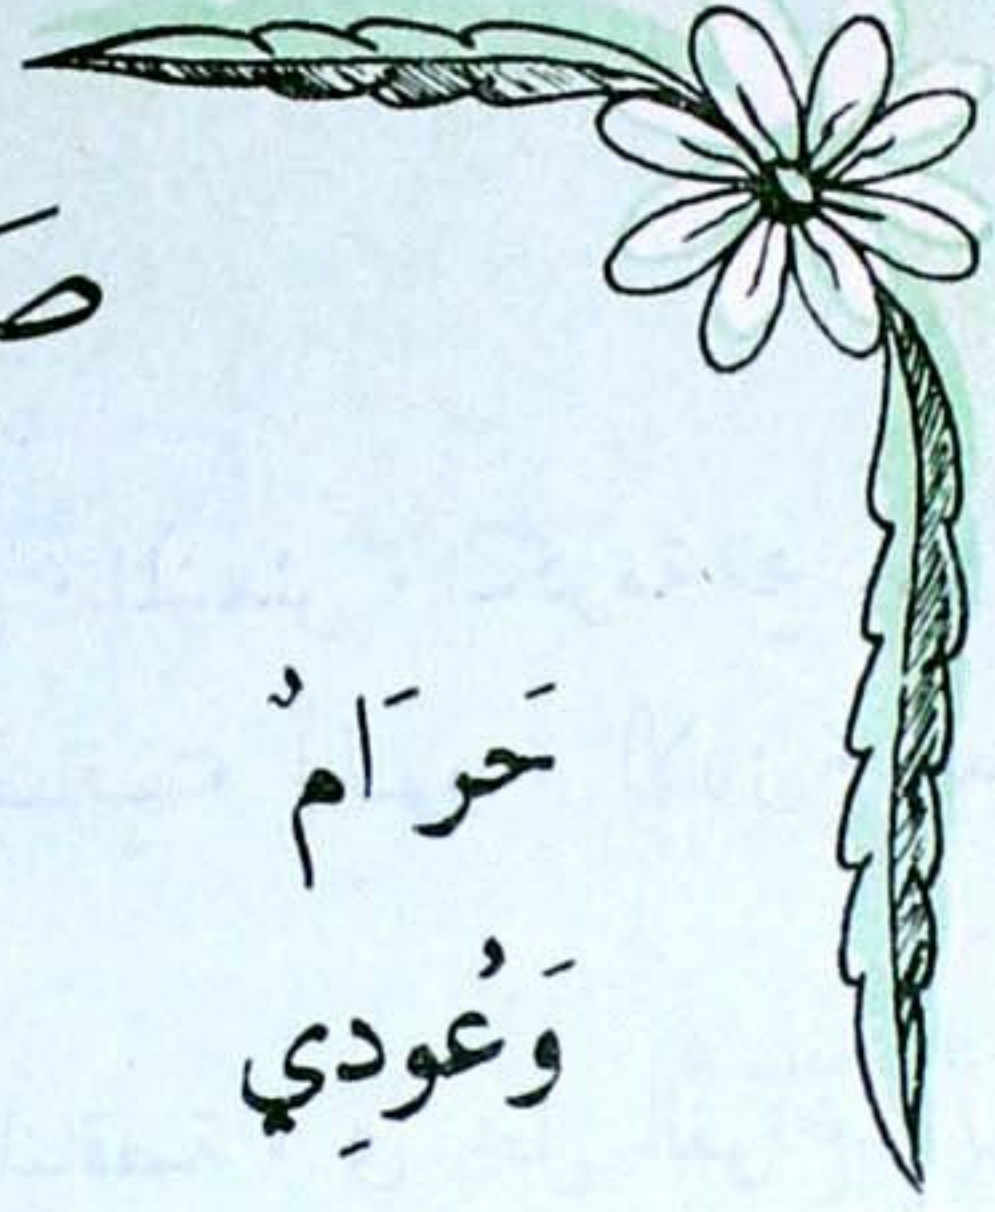 حَرَامٌ
وَعُودِي